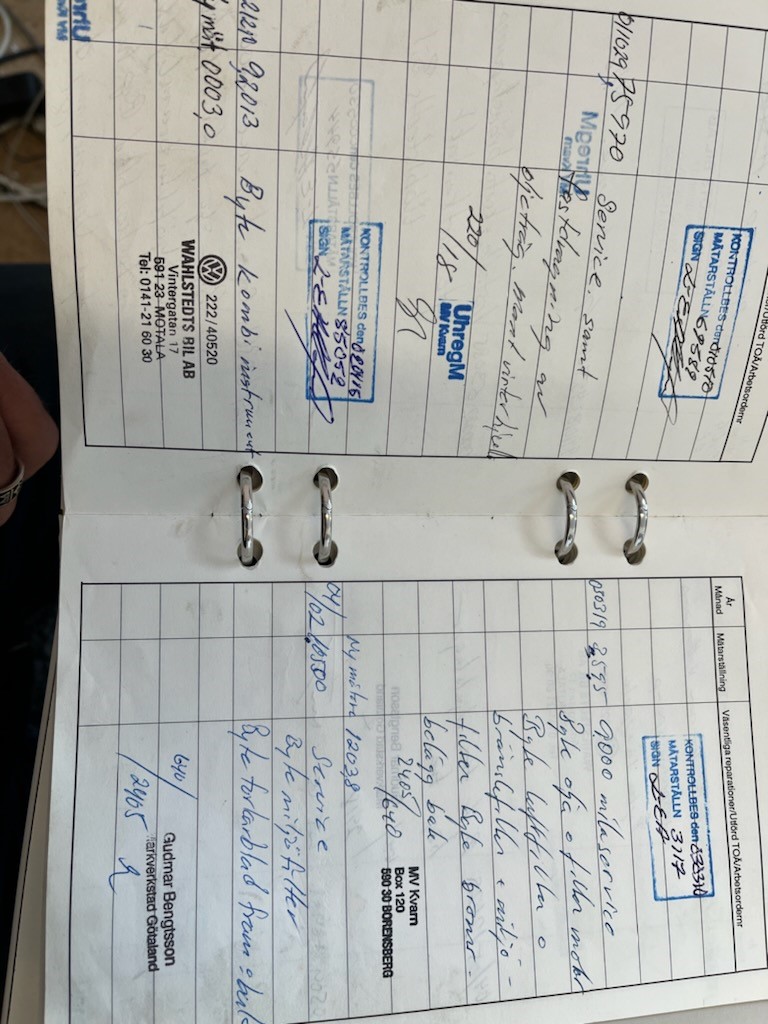 /Utförd TOÅ/Arbetsordernr
KONTROLLBES den
MÄTARSTÄLLN
SIGN
011029 75970 Service samt
UhregM
fastdragning av
oljetråg. mont vinterhjul
220/
/18
UhregM
MV Kvarn
KONTROLLBES den
MÄTARSTÄLLN 85052
SIGN
92013 Byte kombiinstrument
Ny mät 0003,0
222/40520
WAHLSTEDTS BIL AB
Vintergatan 17
591 23 MOTALA
Tel: 0141-21 60 30
År
Månad
Mätarställning
Väsentliga reparationer/Utförd TOÅ/Arbetsordernr
KONTROLLBES den
MÄTARSTÄLLN 3717
SIGN
030319 9,000 milaservice
Byte olja o filter motor
Byte luftfilter o
bränslefilter o miljö-
filter Byte broms-
belägg bak
2405/640
MV Kvarn
Box 120
590 30 BORENSBERG
Ny mätare 12038
04/02 Service
Byte miljöfilter
Byte torkarblad fram o bak
640/
/2405
Gudmar Bengtsson
Markverkstad Götaland